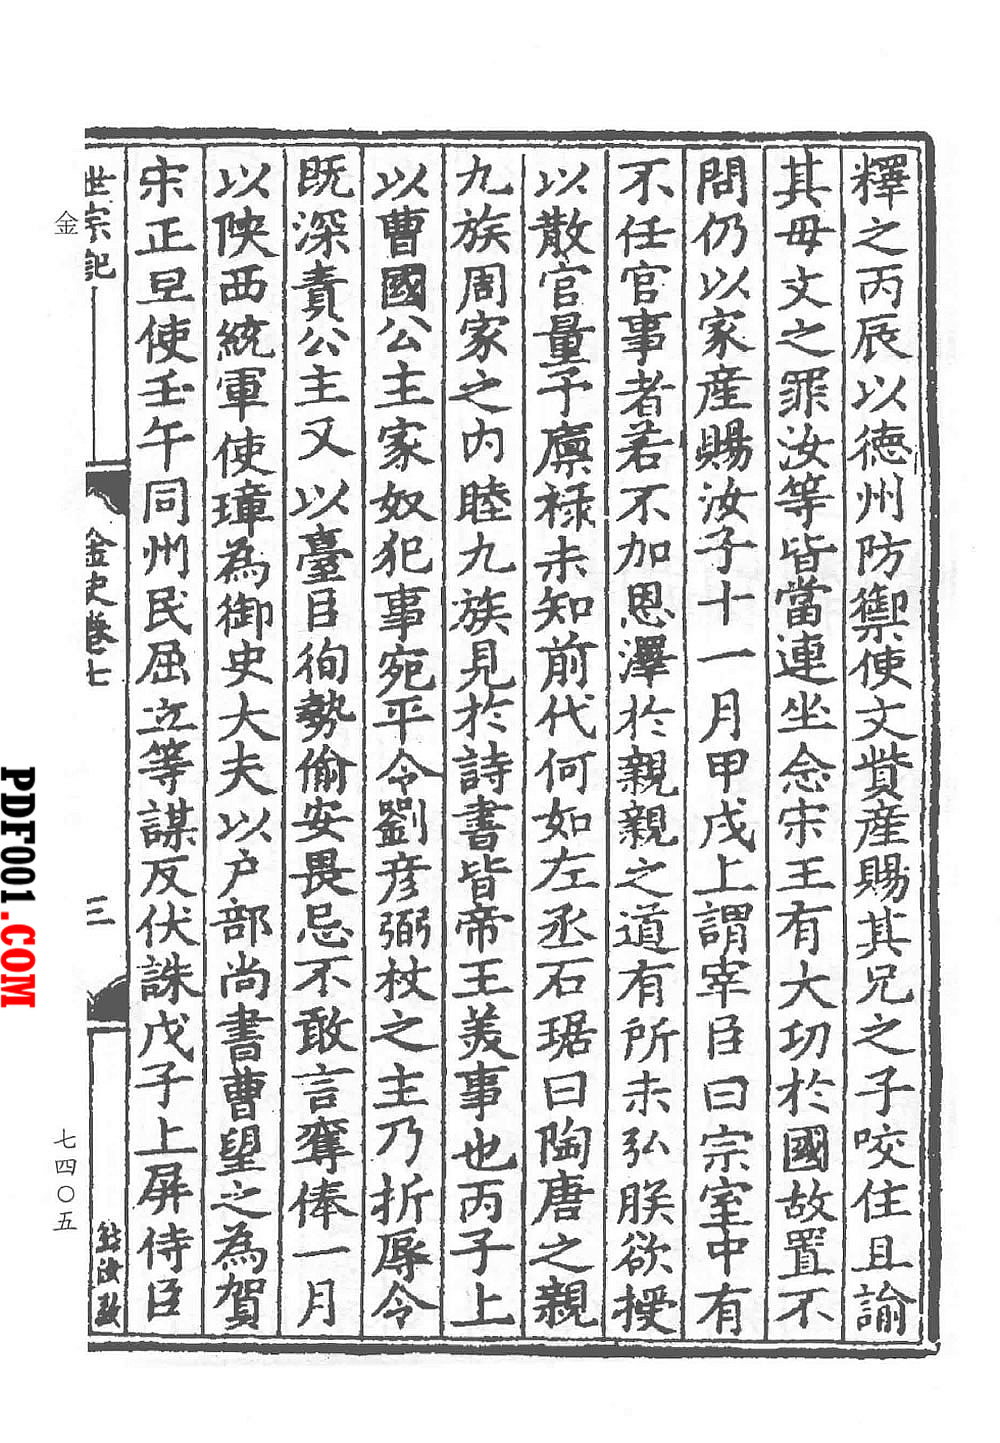 釋之丙辰以德州防禦使文貲産賜其兄之子咬住且諭
其母文之罪汝等皆當連坐念宋王有大功於國故置不
問仍以家産賜汝子十一月甲戌上謂宰臣曰宗室中有
不任官事者若不加恩澤於親親之道有所未弘朕欲授
以散官量予廪禄未知前代何如左丞石琚曰陶唐之親
九族周家之内睦九族見於詩書皆帝王美事也丙子上
以曹國公主家奴犯事宛平令劉彦弼杖之主乃折辱令
既深責公主又以臺臣徇勢偷安畏忌不敢言奪俸一月
以陜西統軍使璋為御史大夫以户部尚書曹望之為賀
宋正旦使壬午同州民屈立等謀反伏誅戊子上屏侍臣
世宗記
金史卷七
三
金
七四〇五
PDF001.COM